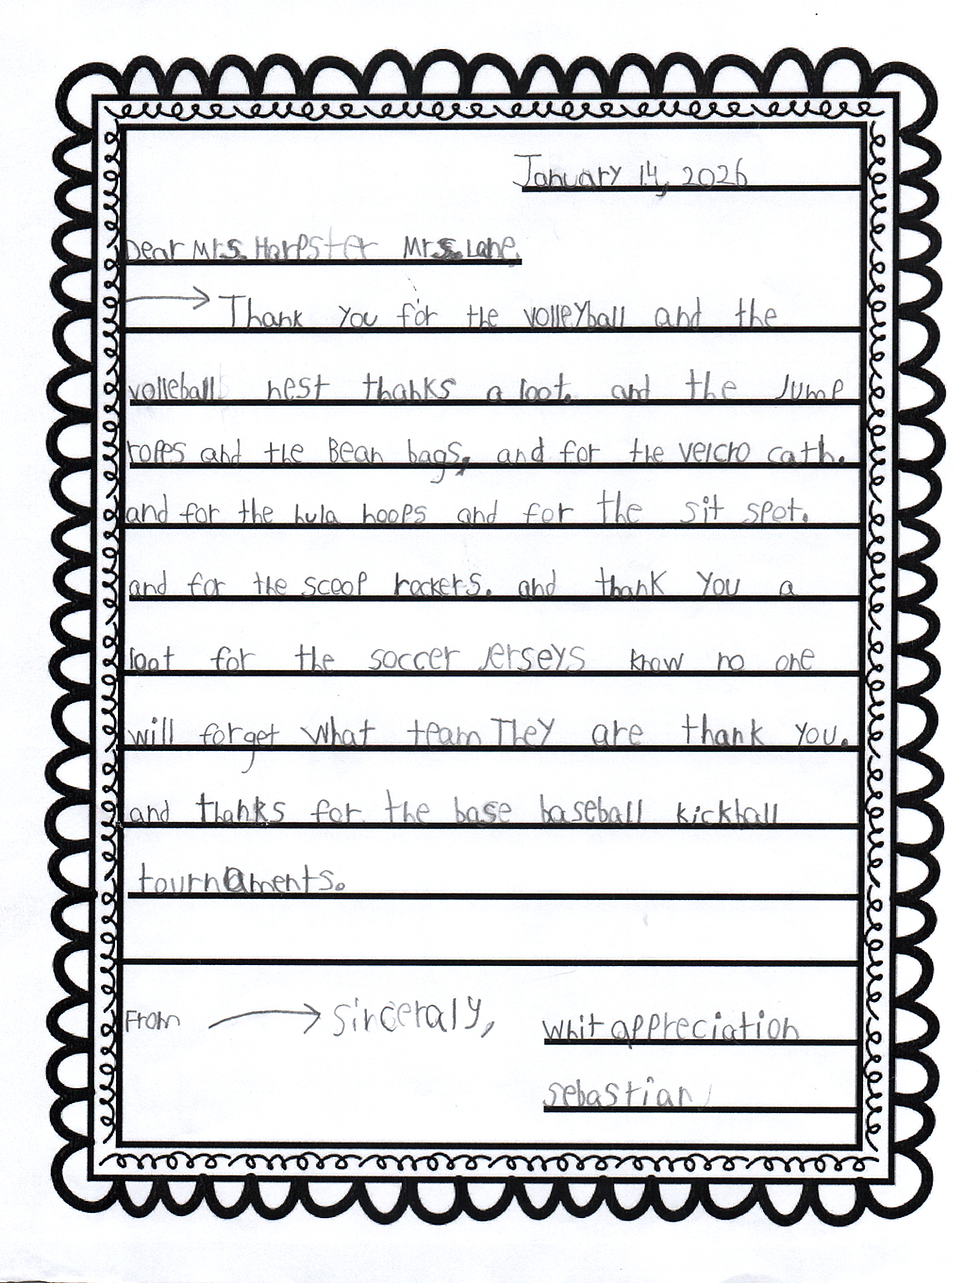 January 14, 2026
Dear Mrs. Harpster Mrs. Lane,
Thank you for the volleyball and the
volleball nest thanks a loot. and the Jump
ropes and the Bean bags, and for the velcro cath.
and for the hula hoops and for the sit spot.
and for the scoop rockets. and thank you a
loat for the soccer Jerseys know no one
will forget what team They are thank you.
and thanks for the base baseball kickball
tournaments.
From sinceraly,
whit appreciation
sebastian